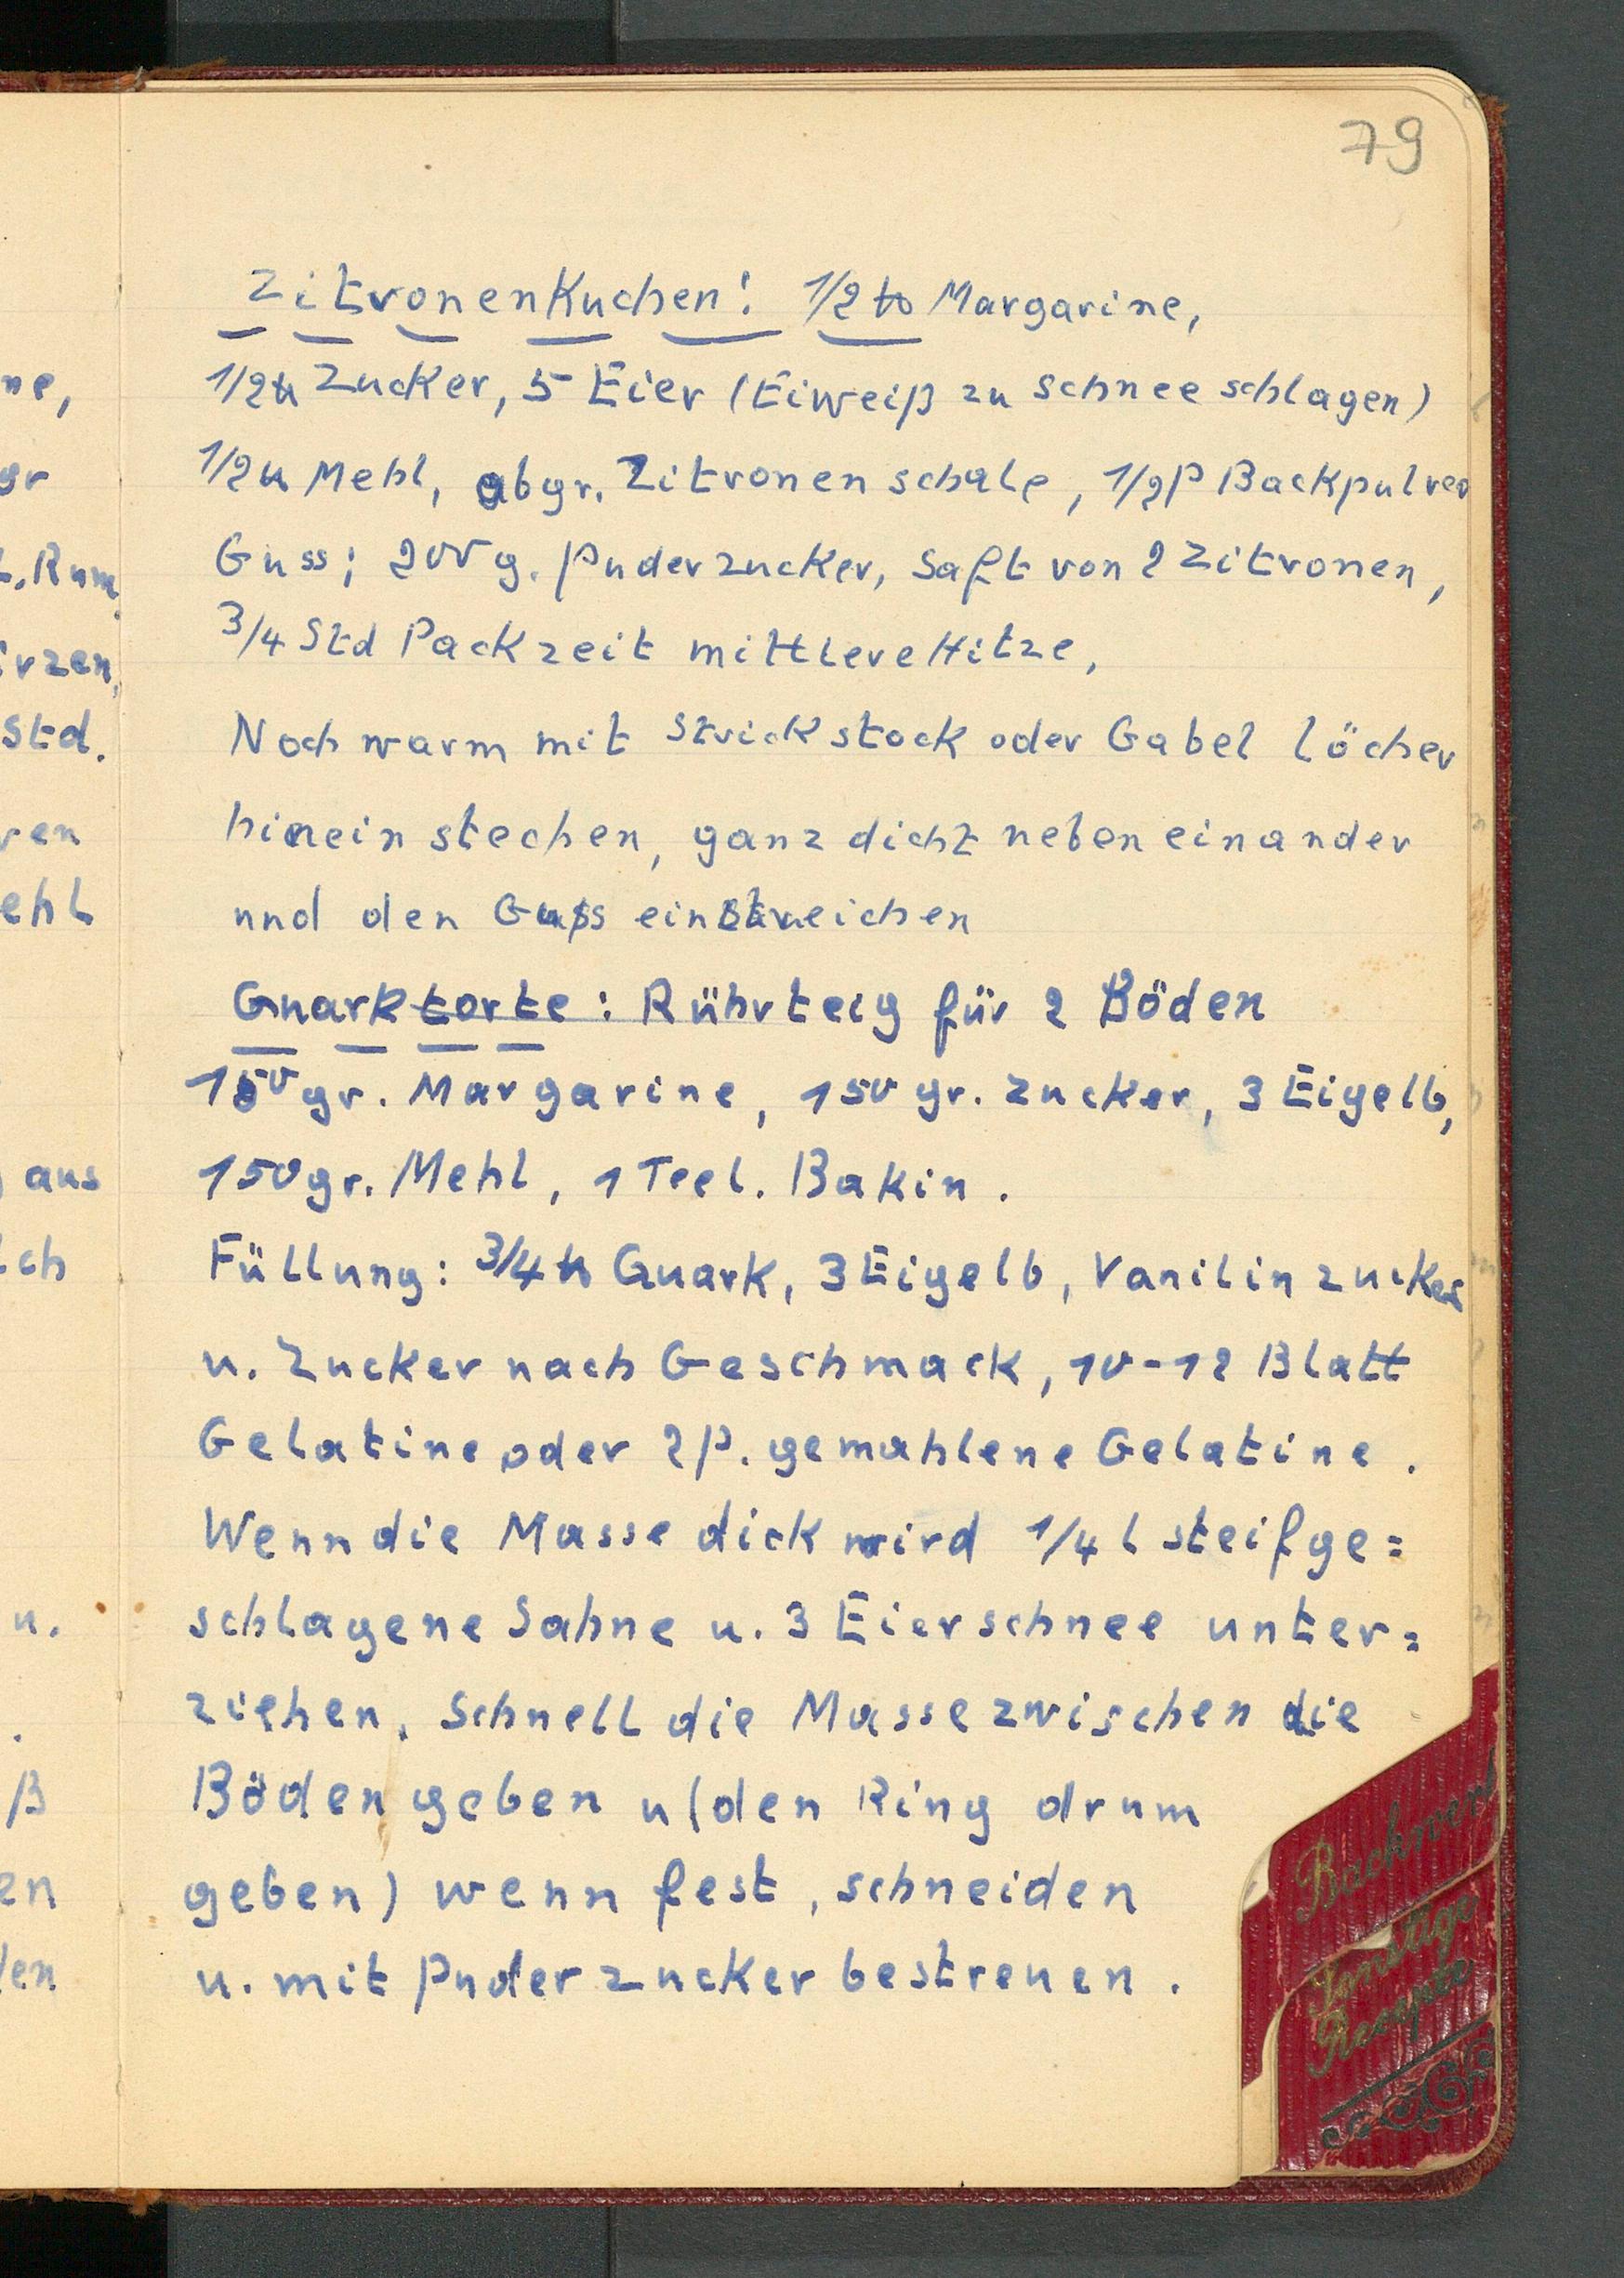 79
Zitronenkuchen: 1/2 ℔ Margarine,
1/2 ℔ Zucker, 5 Eier (Eiweiß zu Schnee schlagen)
1/2 ℔ Mehl, abgr. Zitronenschale, 1/2 P Backpulver
Guss: 200 g. Puderzucker, Saft von 2 Zitronen,
3/4 Std Packzeit mittlere Hitze,
Noch warm mit Strickstock oder Gabel löcher
hinein stechen, ganz dicht nebeneinander
und den Guss einstreichen
Quarktorte: Rührteig für 2 Böden
150 gr. Margarine, 150 gr. Zucker, 3 Eigelb,
150 gr. Mehl, 1 Teel. Bakin.
Füllung: 3/4 ℔ Quark, 3 Eigelb, Vanilinzucker
u. Zucker nach Geschmack, 10-12 Blatt
Gelatine oder 2 P. gemahlene Gelatine.
Wenn die Masse dick wird 1/4 l steifge=
schlagene Sahne u. 3 Eierschnee unter=
ziehen. Schnell die Masse zwischen die
Böden geben u (den Ring drum
geben) wenn fest, schneiden
u. mit Puderzucker bestreuen.
ne,
gr
Rum
Std.
ren
ehl
aus
ch
u.
ß
en
den
Backwerk
Sonstige
Rezepte